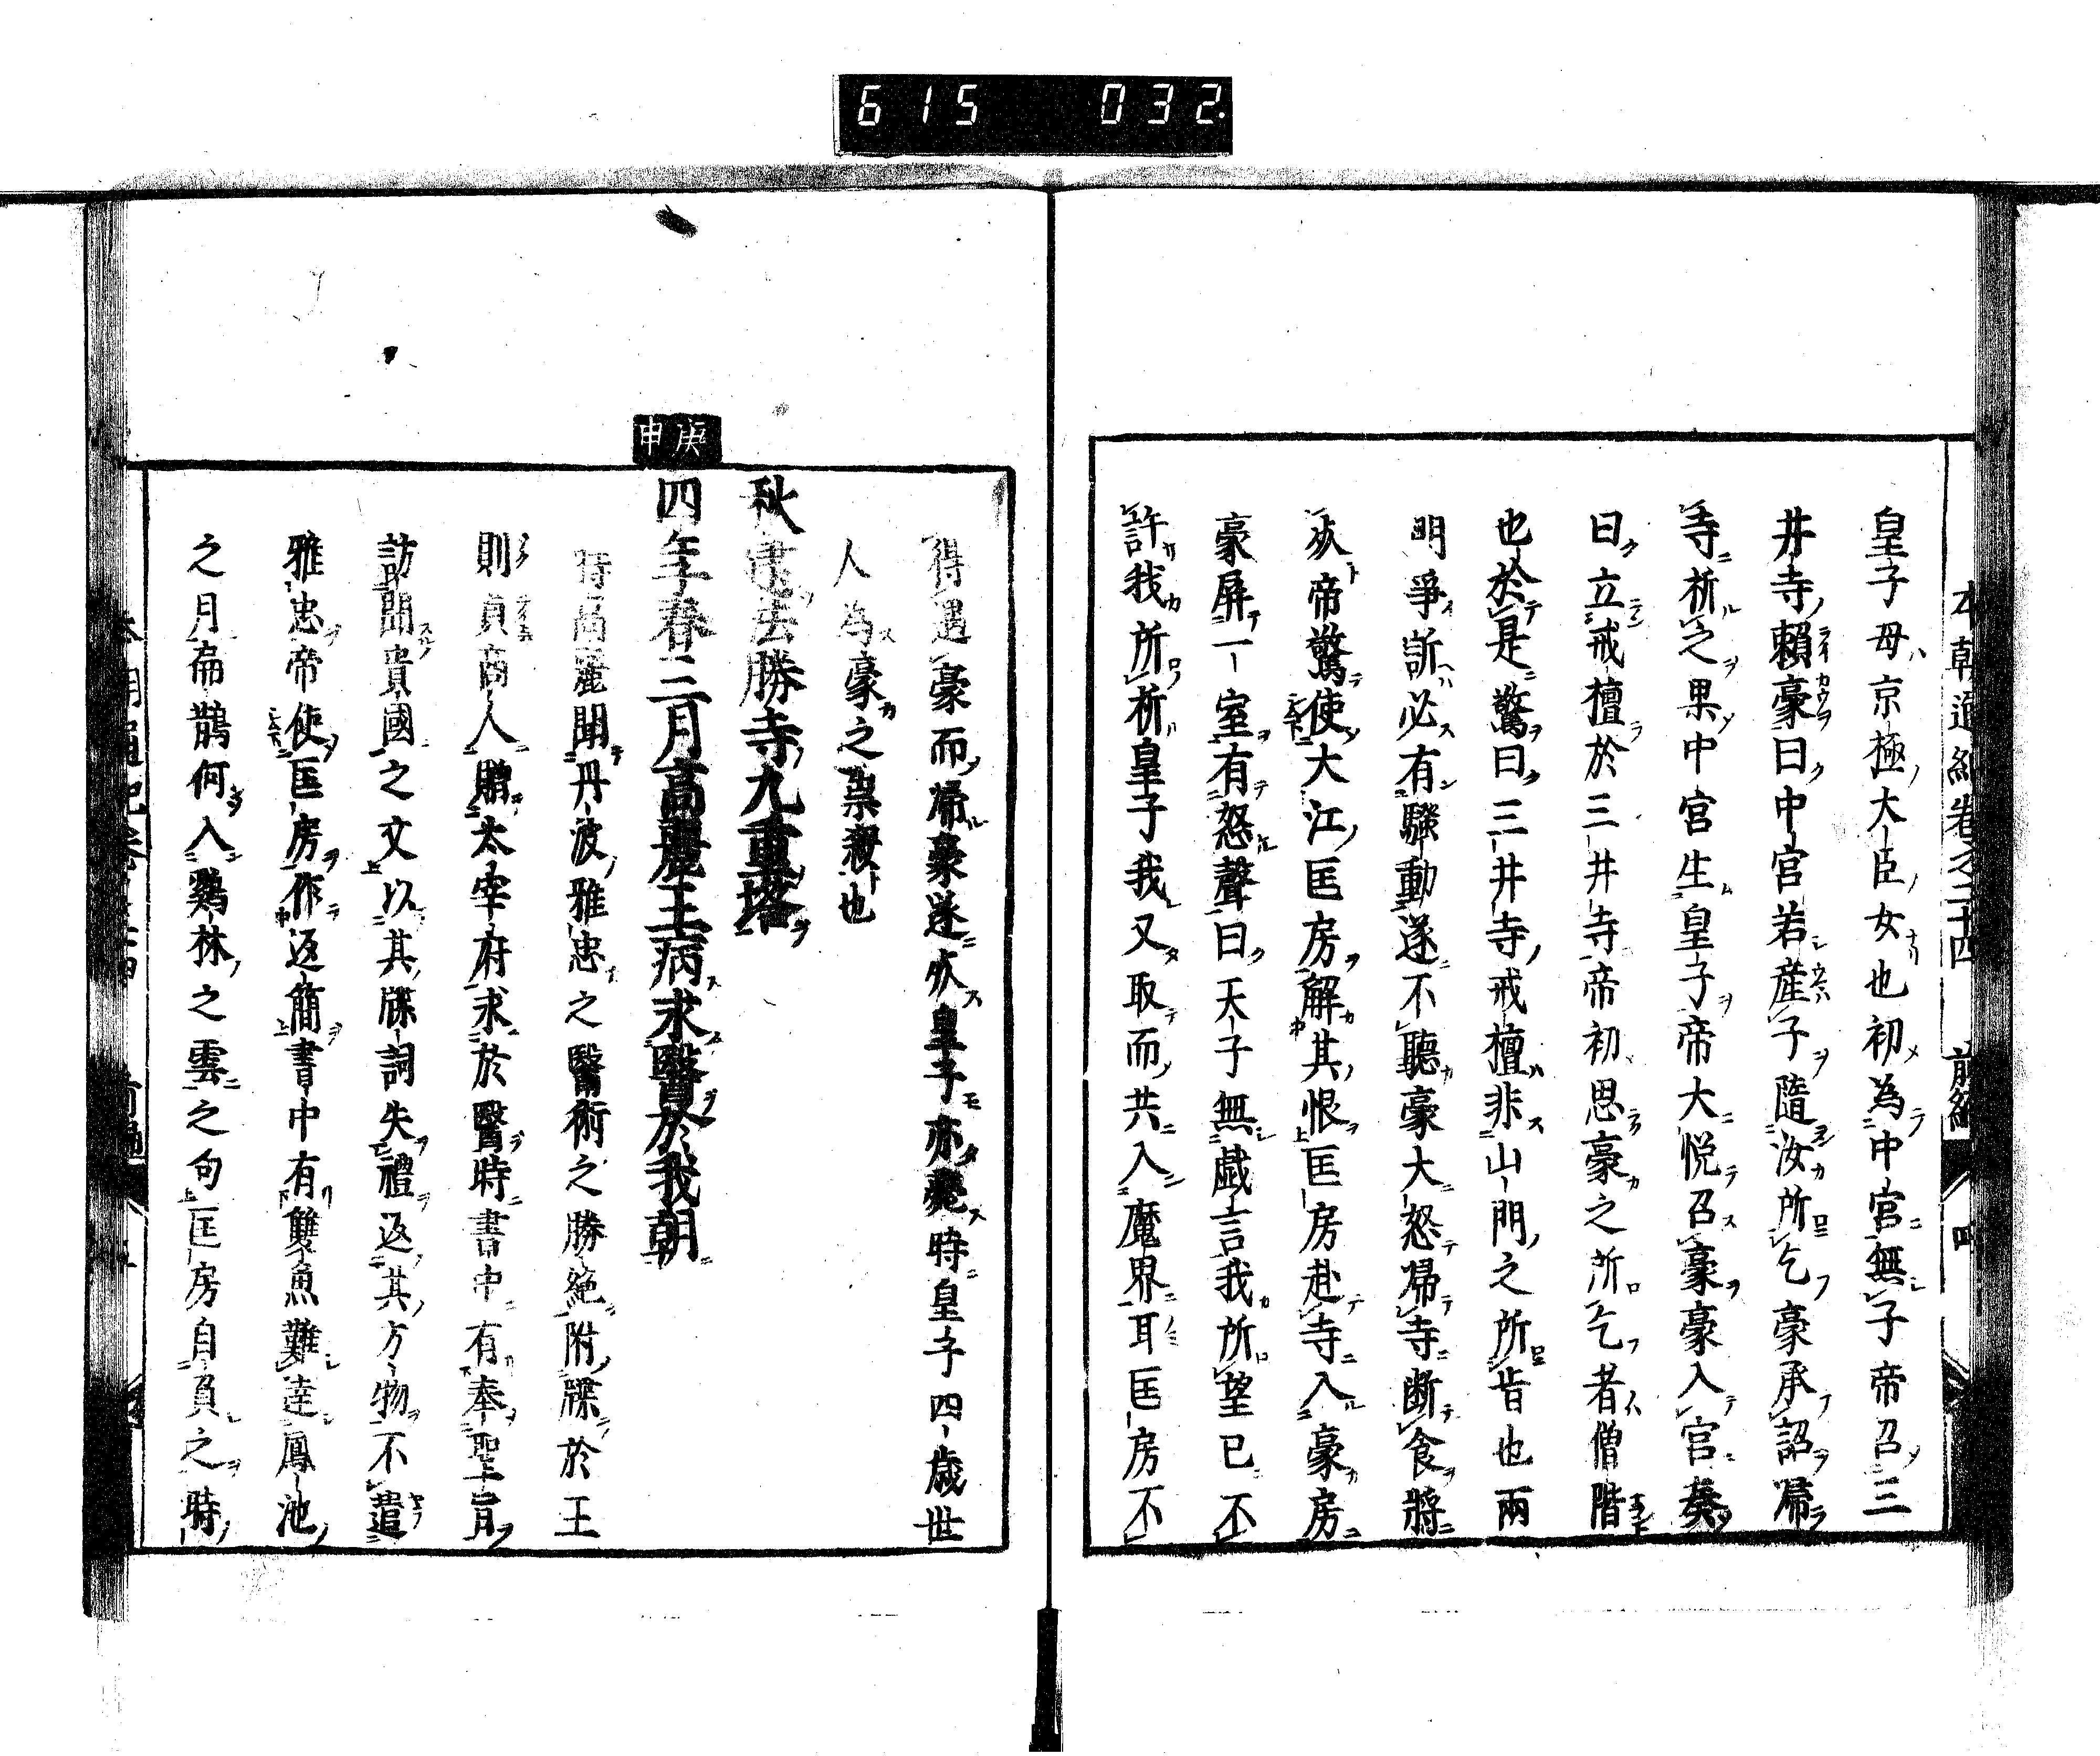 615 032.
本朝通紀卷之二十四 前編
皇子母京極大臣女也初為中宮無子帝召三
井寺賴豪曰中宮若産子隨汝所乞豪承詔帰
寺祈之果中宮生皇子帝大悦召豪豪入宮奏
曰立戒檀於三井寺帝初思豪之所乞者僧階
也於是驚曰三井寺戒檀非山門之所肯也兩
明爭訴必有騷動遂不聽豪大怒帰寺断食將
死帝驚使大江匡房解其恨匡房赴寺入豪房
豪屏一室有怒聲曰天子無戯言我所望已不
許我所祈皇子我又取而共入魔界耳匡房不
得遇豪而帰豪遂死皇子亦薨時皇子四歳世
人為豪之祟殺也
秋建法勝寺九重塔
庚申
四年春三月高麗王病求醫於我朝
時高麗聞丹波雅忠之醫術之勝絶附牒於王
則貞商人贈太宰府求於醫時書中有奉聖旨
訪聞貴國之文以其牒詞失禮返其方物不遣
雅忠帝使匡房作返簡書中有雙魚難達鳳池
之月扁鵲何入鷄林之雲之句匡房自負之時